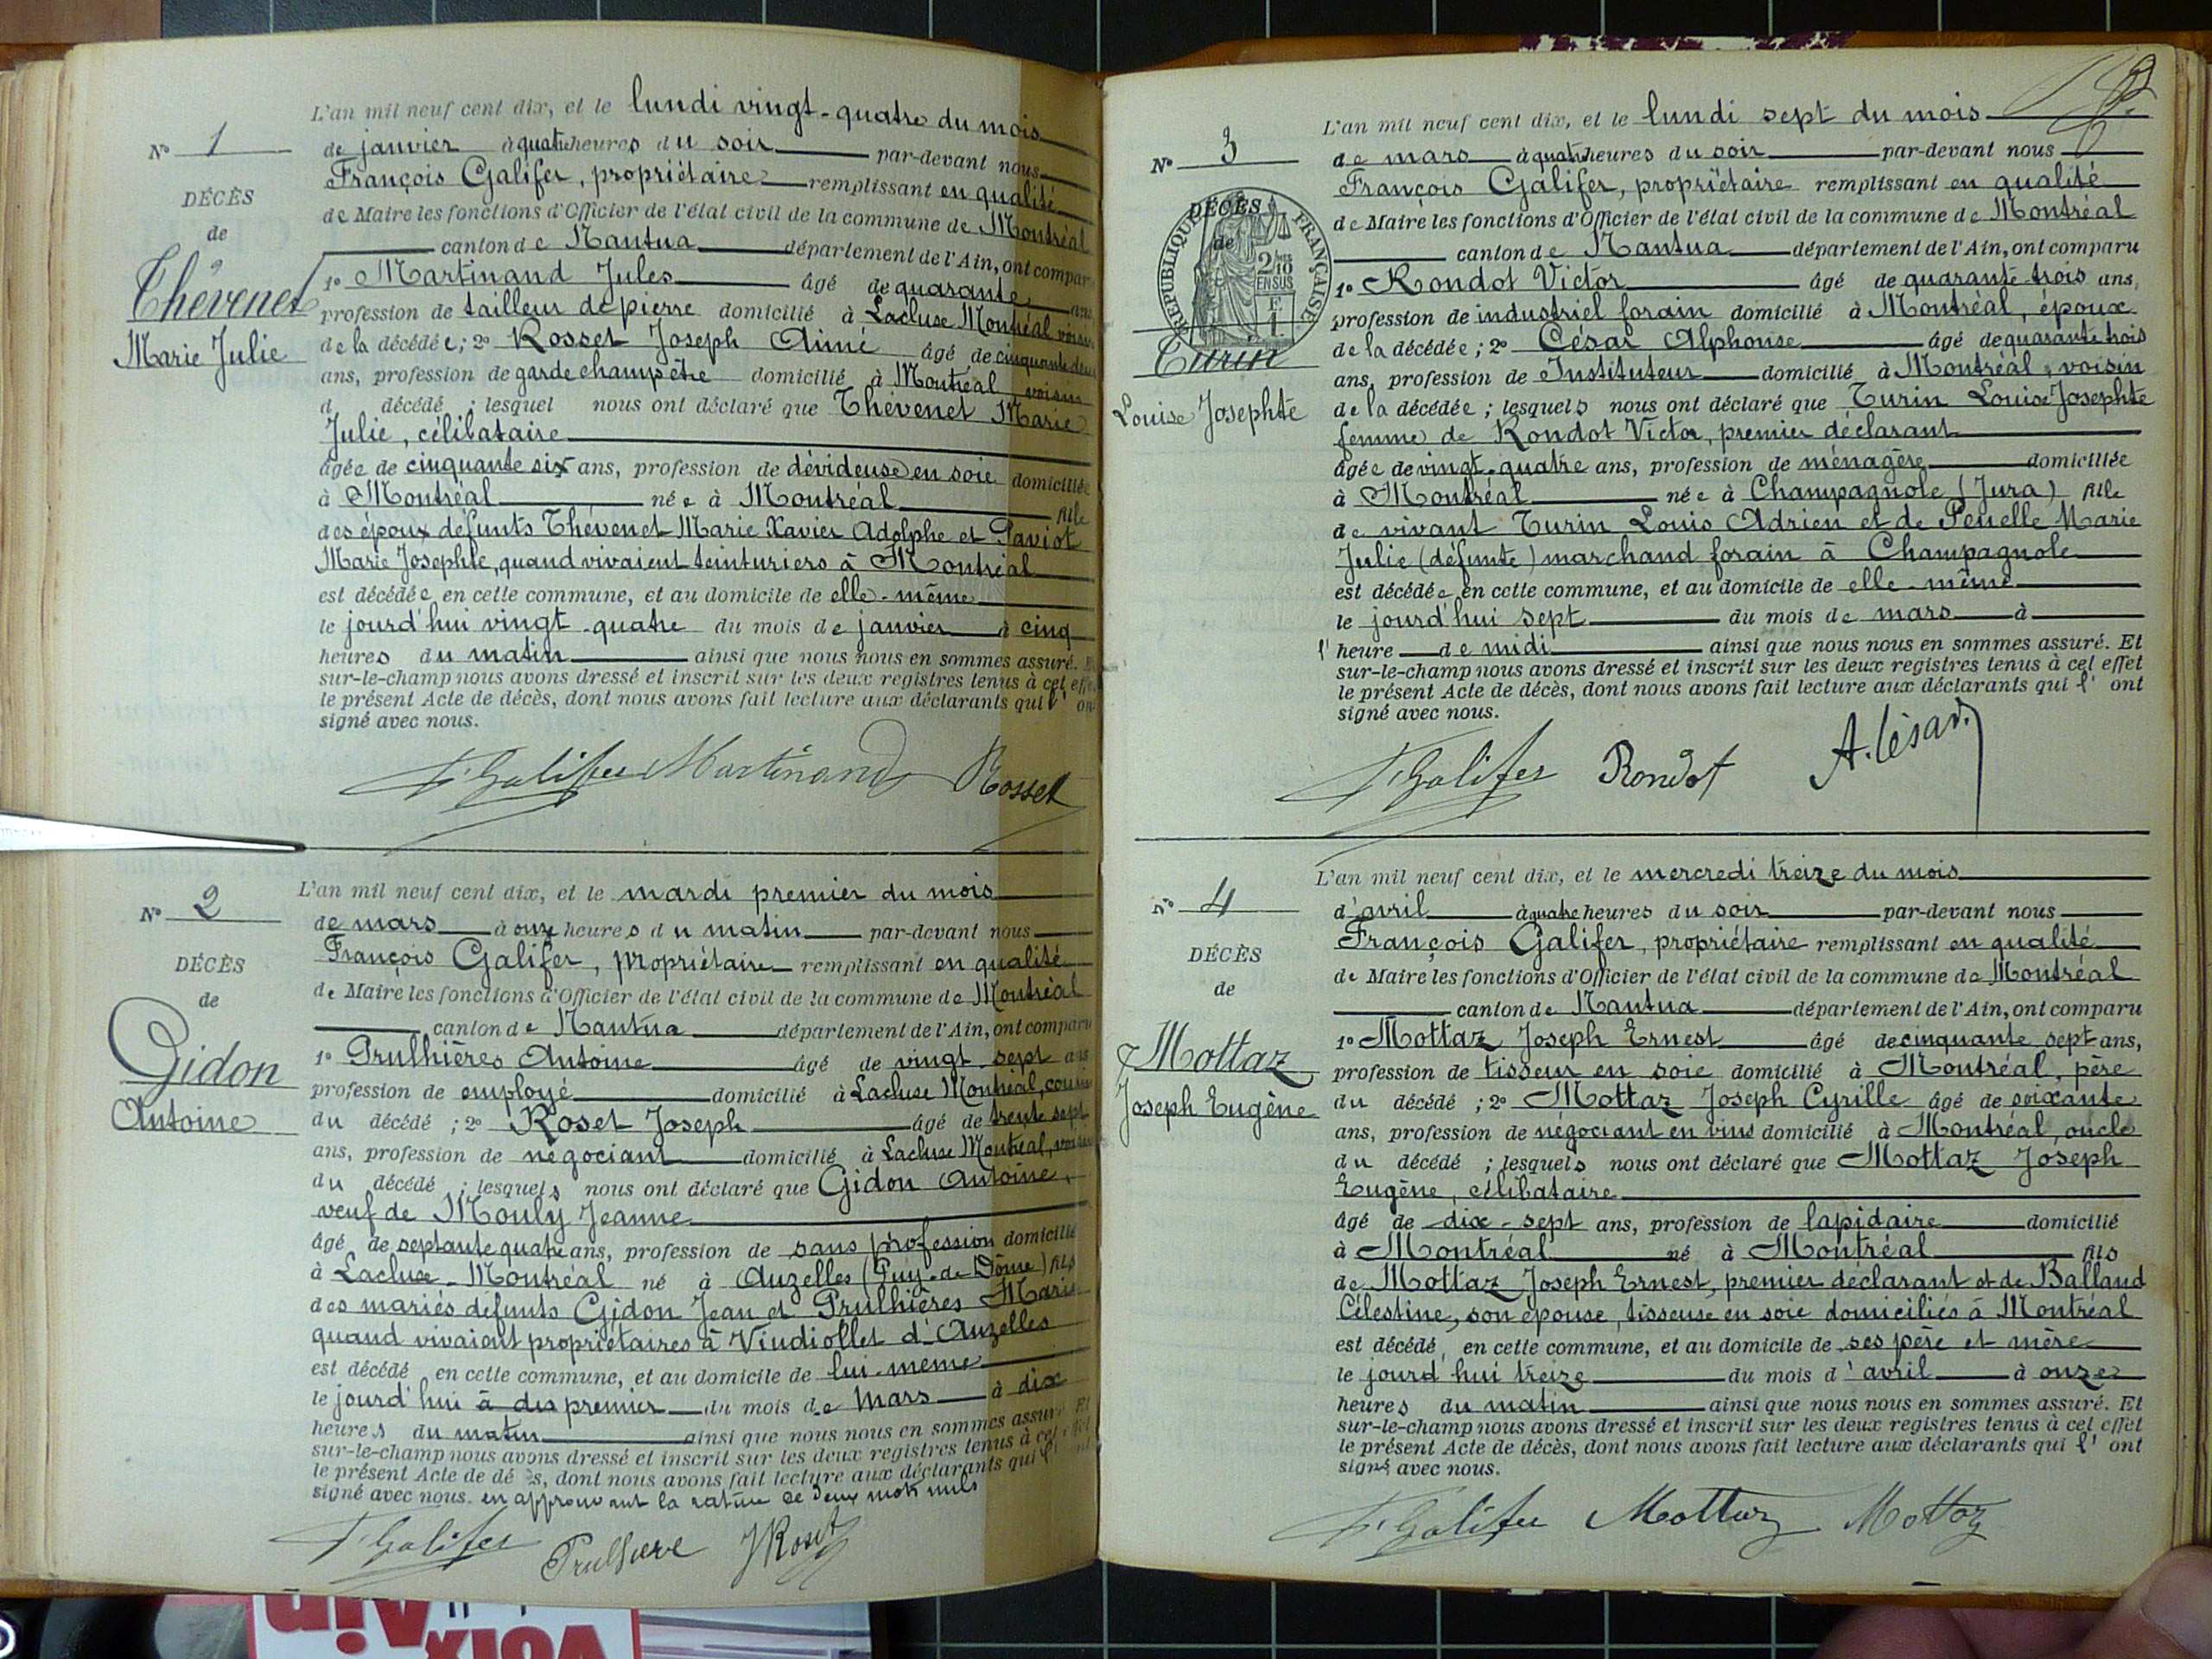 L'an mil neuf cent dix, et le lundi vingt-quatre du mois
N° 1
de janvier à quatre heures du soir par-devant nous
François Galifer, propriétaire remplissant en qualité
DÉCÈS
de Maire les fonctions d'Officier de l'état civil de la commune de Montréal
de
canton de Nantua département de l'Ain, ont comparu
Thévenet
1° Martinand Jules âgé de quarante ans
profession de tailleur de pierre domicilié à Lacluse Montréal voisin
Marie Julie
de la décédée; 2° Rosset Joseph Aimé âgé de cinquante deux
ans, profession de garde champêtre domicilié à Montréal voisin
d décédé ; lesquel nous ont déclaré que Thévenet Marie
Julie, célibataire
âgée de cinquante six ans, profession de dévideuse en soie domiciliée
à Montréal née à Montréal fille
des époux défunts Thévenet Marie Xavier Adolphe et Paviot
Marie Josephte, quand vivaient teinturiers à Montréal
est décédée en cette commune, et au domicile de elle-même
le jourd'hui vingt-quatre du mois de janvier à cinq
heures du matin ainsi que nous nous en sommes assuré. Et
sur-le-champ nous avons dressé et inscrit sur les deux registres tenus à cet effet
le présent Acte de décès, dont nous avons fait lecture aux déclarants qui l' ont
signé avec nous.
F. Galifer Martinand Rosset
L'an mil neuf cent dix, et le mardi premier du mois
N° 2
de mars à onze heures du matin par-devant nous
François Galifer, propriétaire remplissant en qualité
DÉCÈS
de Maire les fonctions d'Officier de l'état civil de la commune de Montréal
de
canton de Nantua département de l'Ain, ont comparu
Gidon
1° Prulhières Antoine âgé de vingt-sept ans
profession de employé domicilié à Lacluse Montréal, cousin
Antoine
du décédé ; 2° Roset Joseph âgé de trente sept
ans, profession de négociant domicilié à Lacluse Montréal, voisin
du décédé ; lesquels nous ont déclaré que Gidon Antoine,
veuf de Mouly Jeanne
âgé de septante quatre ans, profession de sans profession domicilié
à Lacluse-Montréal né à Auzelles (Puy-de Dôme) fils
des mariés défunts Gidon Jean et Prulhières Marie
quand vivaient propriétaires à Viudiollet d'Auzelles
est décédé en cette commune, et au domicile de lui-même
le jourd'hui à dix premier du mois de Mars à dix
heures du matin ainsi que nous nous en sommes assuré Et
sur-le-champ nous avons dressé et inscrit sur les deux registres tenus à cet effet
le présent Acte de dé s, dont nous avons fait lecture aux déclarants qui l' ont
signé avec nous. en approuvant la rature de deux mots nuls
F. Galifer Prulhiere J Roset
L'an mil neuf cent dix, et le lundi sept du mois
N° 3
de mars à quatre heures du soir par-devant nous
François Galifer, propriétaire remplissant en qualité
DÉCÈS
de Maire les fonctions d'Officier de l'état civil de la commune de Montréal
de
RÉPUBLIQUE FRANÇAISE
2/10 EN SUS
canton de Nantua département de l'Ain, ont comparu
1° Rondot Victor âgé de quarante-trois ans,
profession de industriel forain domicilié à Montréal, époux
Turin
de la décédée ; 2° César Alphonse âgé de quarante trois
ans, profession de Instituteur domicilié à Montréal, voisin
Louise Josephte
de la décédée ; lesquels nous ont déclaré que Turin Louise Josephte
femme de Rondot Victor, premier déclarant
âgée de vingt-quatre ans, profession de ménagère domiciliée
à Montréal née à Champagnole (Jura) fille
de vivant Turin Louis Adrien et de Penelle Marie
Julie (défunte) marchand forain à Champagnole
est décédée en cette commune, et au domicile de elle-même
le jourd'hui sept du mois de mars à
l'heure de midi ainsi que nous nous en sommes assuré. Et
sur-le-champ nous avons dressé et inscrit sur les deux registres tenus à cet effet
le présent Acte de décès, dont nous avons fait lecture aux déclarants qui l' ont
signé avec nous.
F. Galifer Rondot A. César
L'an mil neuf cent dix, et le mercredi treize du mois
N° 4
d'avril à quatre heures du soir par-devant nous
François Galifer, propriétaire remplissant en qualité
DÉCÈS
de Maire les fonctions d'Officier de l'état civil de la commune de Montréal
de
canton de Nantua département de l'Ain, ont comparu
Mottaz
1° Mottaz Joseph Ernest âgé de cinquante sept ans,
profession de tisseur en soie domicilié à Montréal, père
Joseph Eugène
du décédé ; 2° Mottaz Joseph Cyrille âgé de soixante
ans, profession de négociant en vins domicilié à Montréal, oncle
du décédé ; lesquels nous ont déclaré que Mottaz Joseph
Eugène, célibataire
âgé de dix-sept ans, profession de lapidaire domicilié
à Montréal né à Montréal fils
de Mottaz Joseph Ernest, premier déclarant et de Balland
Célestine, son épouse, tisseuse en soie domiciliés à Montréal
est décédé, en cette commune, et au domicile de ses père et mère
le jourd'hui treize du mois d'avril à onze
heures du matin ainsi que nous nous en sommes assuré. Et
sur-le-champ nous avons dressé et inscrit sur les deux registres tenus à cet effet
le présent Acte de décès, dont nous avons fait lecture aux déclarants qui l' ont
signé avec nous.
F. Galifer Mottaz Mottaz